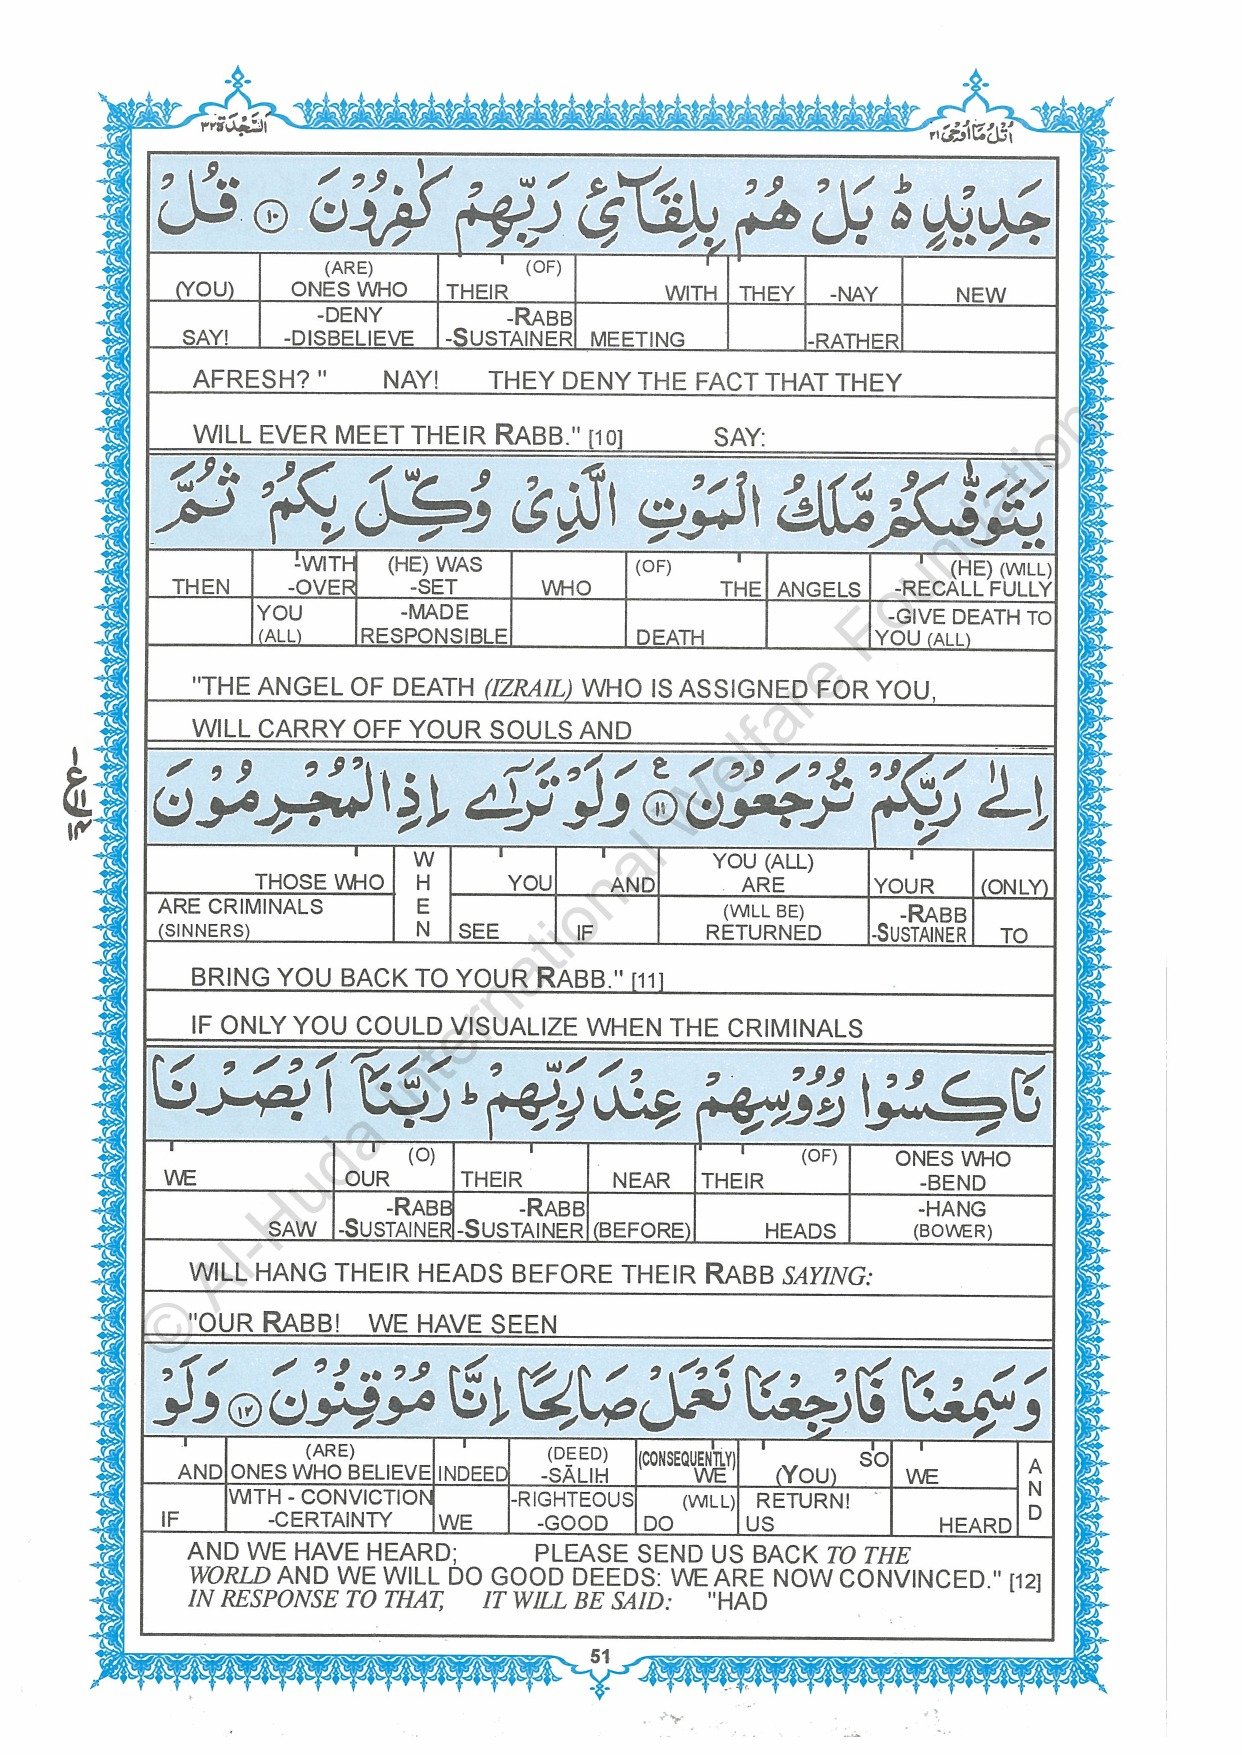 اَلسَّجْدَة ٣٢
اُتْلُ مَا اُوْحِیَ ٢١
جَدِيْدٍ ۬ؕ بَلْ هُمْ بِلِقَآئِ رَبِّهِمْ كٰفِرُوْنَ ١٠ قُلْ
(YOU) (ARE) ONES WHO THEIR (OF) WITH THEY -NAY NEW
SAY! -DENY -DISBELIEVE -RABB -SUSTAINER MEETING -RATHER
AFRESH? " NAY! THEY DENY THE FACT THAT THEY
WILL EVER MEET THEIR RABB." [10] SAY:
يَتَوَفّٰىكُمْ مَّلَكُ الْمَوْتِ الَّذِيْ وُكِّلَ بِكُمْ ثُمَّ
THEN -WITH -OVER (HE) WAS -SET WHO (OF) THE ANGELS (HE) (WILL) -RECALL FULLY
YOU (ALL) -MADE RESPONSIBLE DEATH -GIVE DEATH TO YOU (ALL)
"THE ANGEL OF DEATH (IZRAIL) WHO IS ASSIGNED FOR YOU,
WILL CARRY OFF YOUR SOULS AND
اِلٰى رَبِّكُمْ تُرْجَعُوْنَ ١١ ع وَلَوْ تَرٰٓى اِذِ الْمُجْرِمُوْنَ
THOSE WHO WHEN YOU AND YOU (ALL) ARE YOUR (ONLY)
ARE CRIMINALS (SINNERS) SEE IF (WILL BE) RETURNED -RABB -SUSTAINER TO
BRING YOU BACK TO YOUR RABB." [11]
IF ONLY YOU COULD VISUALIZE WHEN THE CRIMINALS
نَاكِسُوْا رُءُوْسِهِمْ عِنْدَ رَبِّهِمْ ؕ رَبَّنَآ اَبْصَرْنَا
WE OUR (O) THEIR NEAR THEIR (OF) ONES WHO -BEND
SAW -RABB -SUSTAINER -RABB -SUSTAINER (BEFORE) HEADS -HANG (BOWER)
WILL HANG THEIR HEADS BEFORE THEIR RABB SAYING:
"OUR RABB! WE HAVE SEEN
وَسَمِعْنَا فَارْجِعْنَا نَعْمَلْ صَالِحًا اِنَّا مُوْقِنُوْنَ ١٢ وَلَوْ
AND (ARE) ONES WHO BELIEVE INDEED (DEED) -SĀLIH (CONSEQUENTLY) WE (YOU) SO WE AND
IF WITH - CONVICTION -CERTAINTY WE -RIGHTEOUS -GOOD (WILL) DO RETURN! US HEARD
AND WE HAVE HEARD; PLEASE SEND US BACK TO THE
WORLD AND WE WILL DO GOOD DEEDS: WE ARE NOW CONVINCED." [12]
IN RESPONSE TO THAT, IT WILL BE SAID: "HAD
51
© Al-Huda International Welfare Foundation